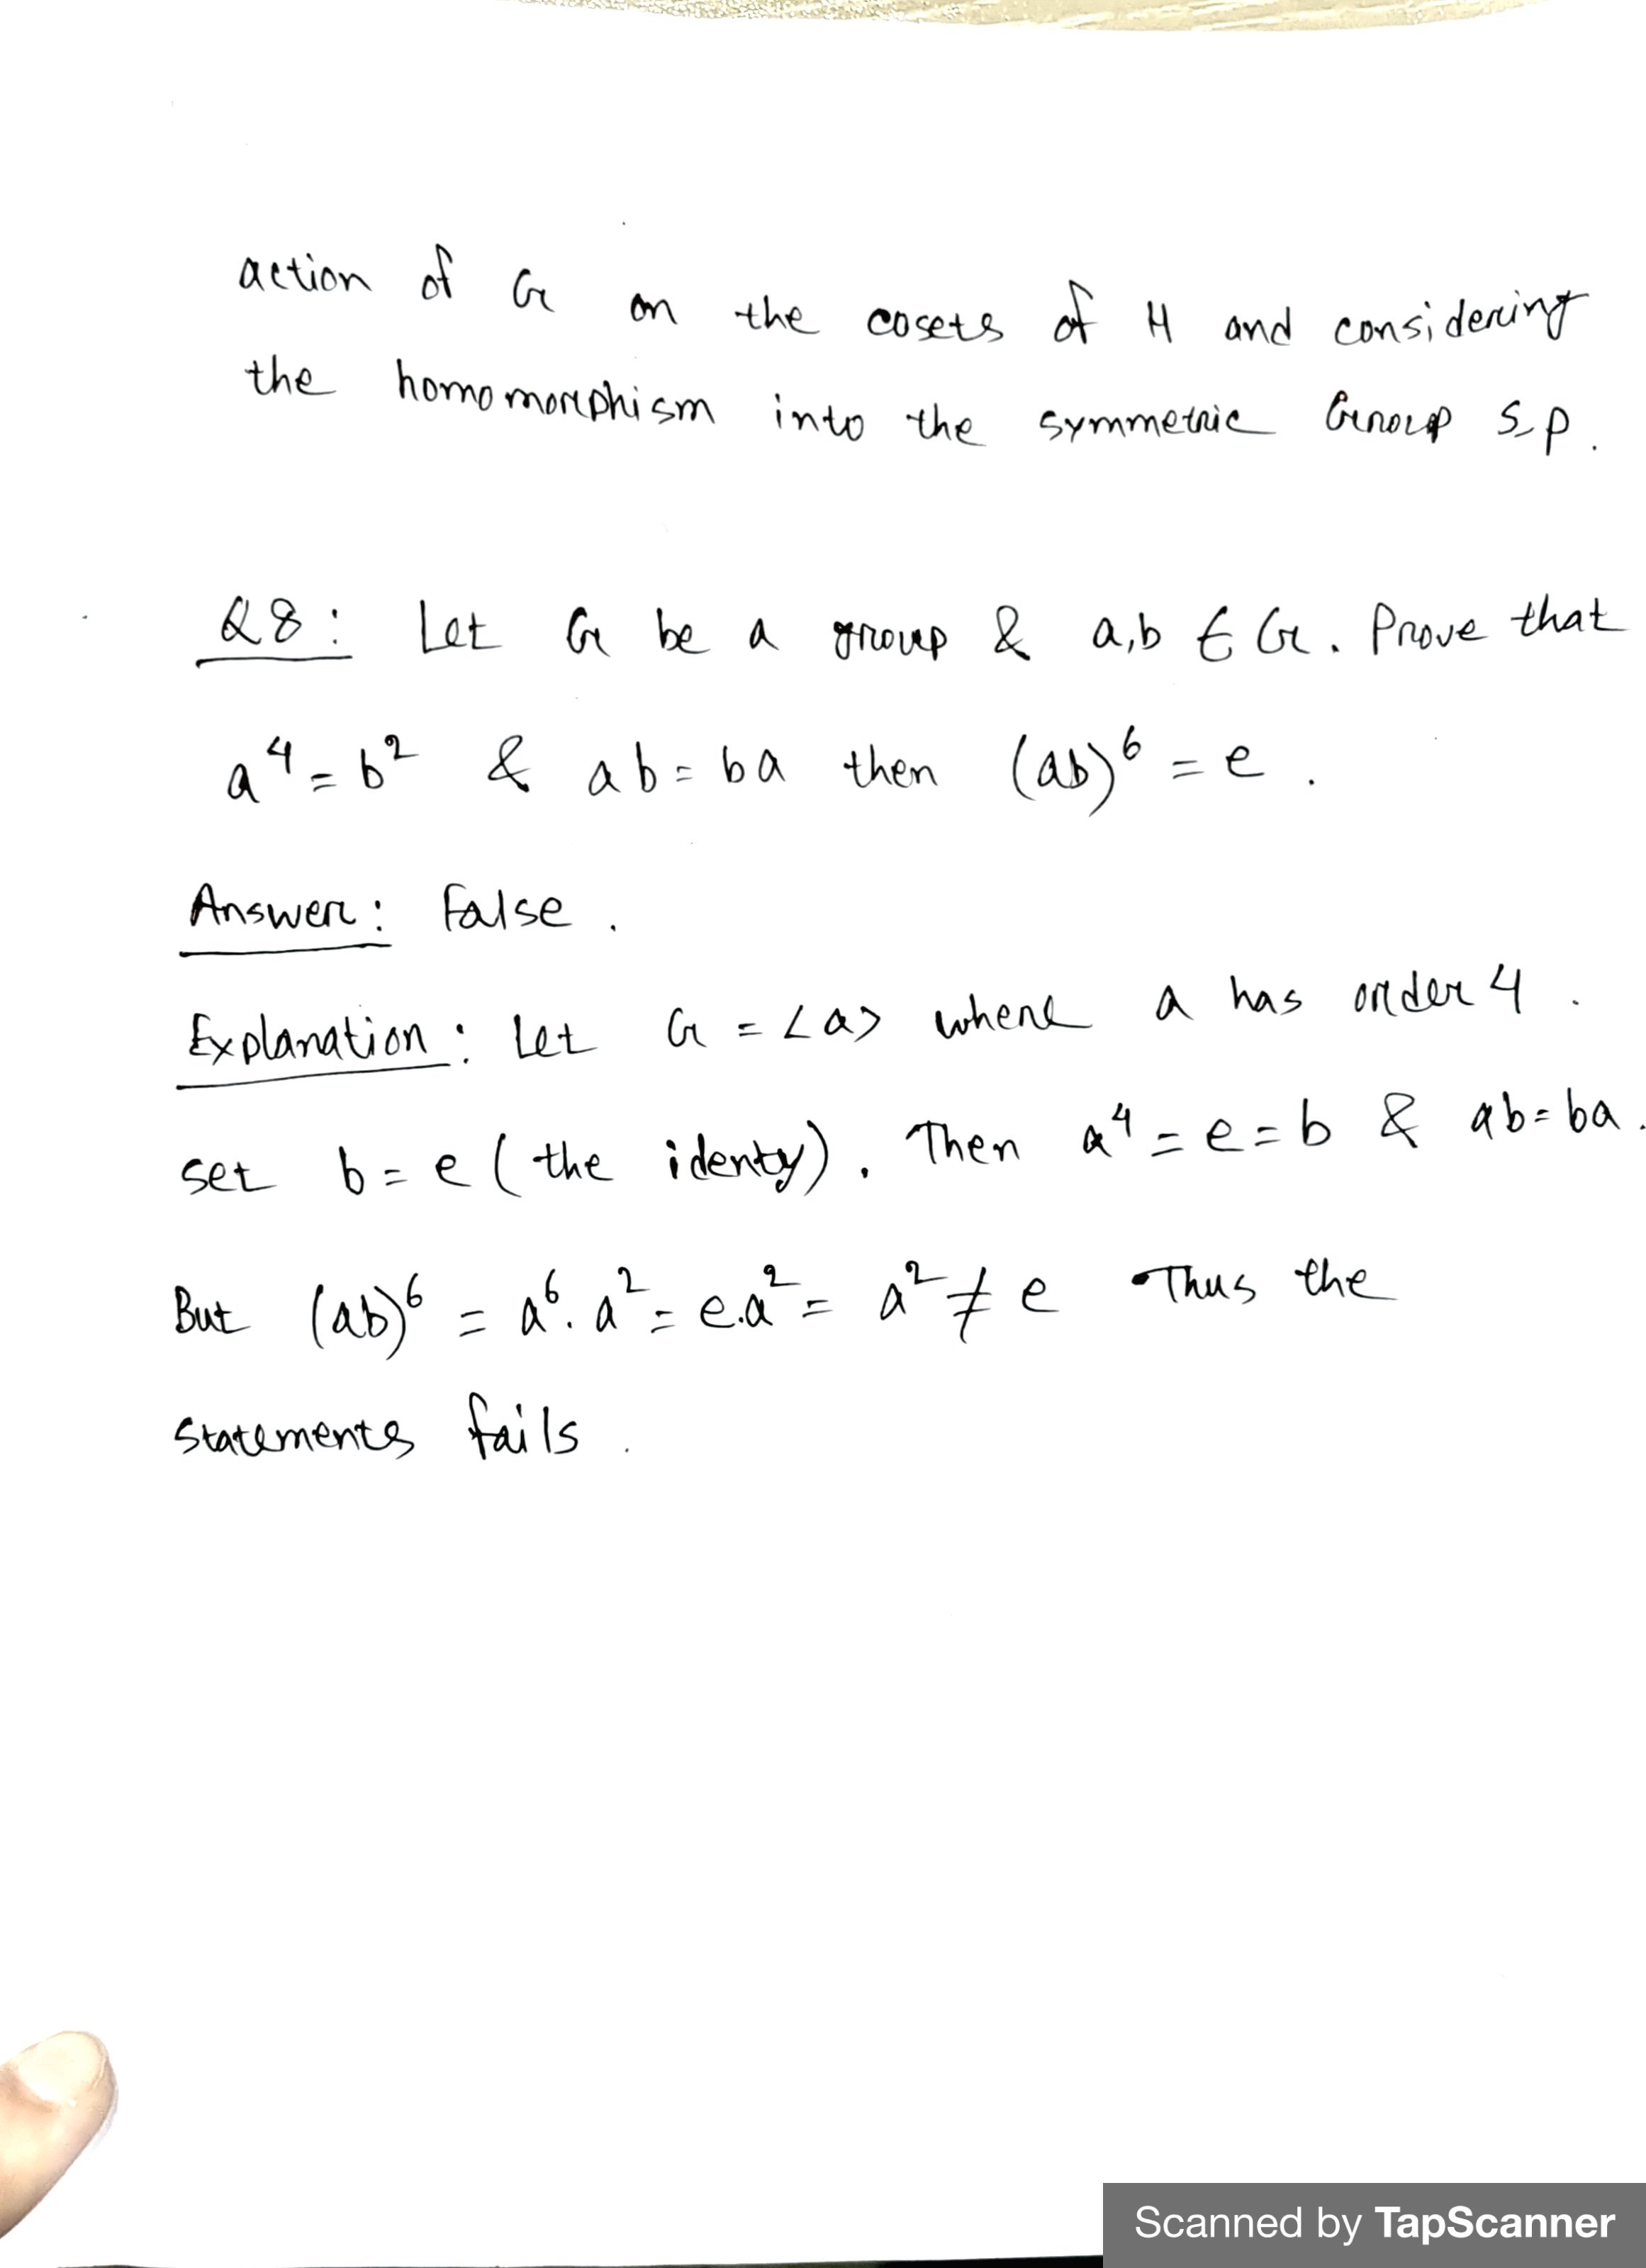 action of G on the cosets of H and considering
the homomorphism into the symmetric Group S_p.
Q8: Let G be a group & a,b ∈ G. Prove that
a⁴ = b² & ab = ba then (ab)⁶ = e .
Answer: False .
Explanation: Let G = <a> where a has order 4 .
set b = e ( the identy). Then a⁴ = e = b & ab = ba.
But (ab)⁶ = a⁶. a² = e.a² = a² ≠ e Thus the
statements fails .
Scanned by TapScanner